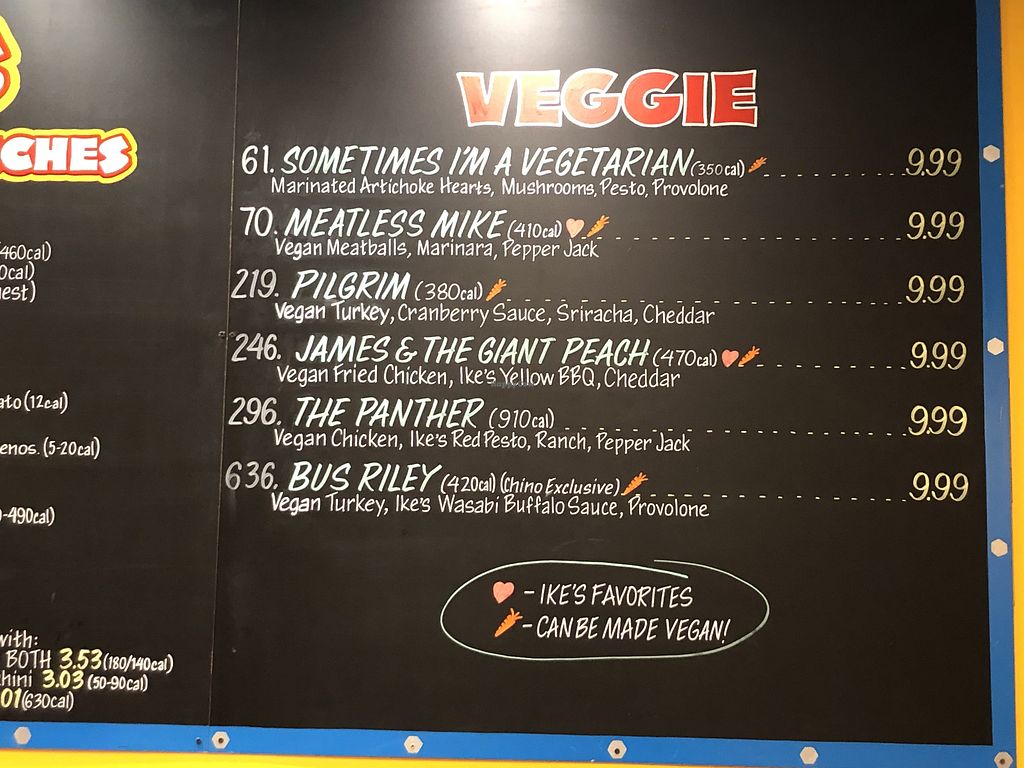 CHES
460cal)
0cal)
est)
ato (12cal)
enos. (5-20cal)
-490cal)
with:
BOTH 3.53 (180/140cal)
hini 3.03 (50-90cal)
01 (630cal)
VEGGIE
61. SOMETIMES I'M A VEGETARIAN (350cal) 9.99
Marinated Artichoke Hearts, Mushrooms, Pesto, Provolone
70. MEATLESS MIKE (410cal) 9.99
Vegan Meatballs, Marinara, Pepper Jack
219. PILGRIM (380cal) 9.99
Vegan Turkey, Cranberry Sauce, Sriracha, Cheddar
246. JAMES & THE GIANT PEACH (470cal) 9.99
Vegan Fried Chicken, Ike's Yellow BBQ, Cheddar
296. THE PANTHER (910cal) 9.99
Vegan Chicken, Ike's Red Pesto, Ranch, Pepper Jack
636. BUS RILEY (420cal) (Chino Exclusive) 9.99
Vegan Turkey, Ike's Wasabi Buffalo Sauce, Provolone
- IKE'S FAVORITES
- CAN BE MADE VEGAN!